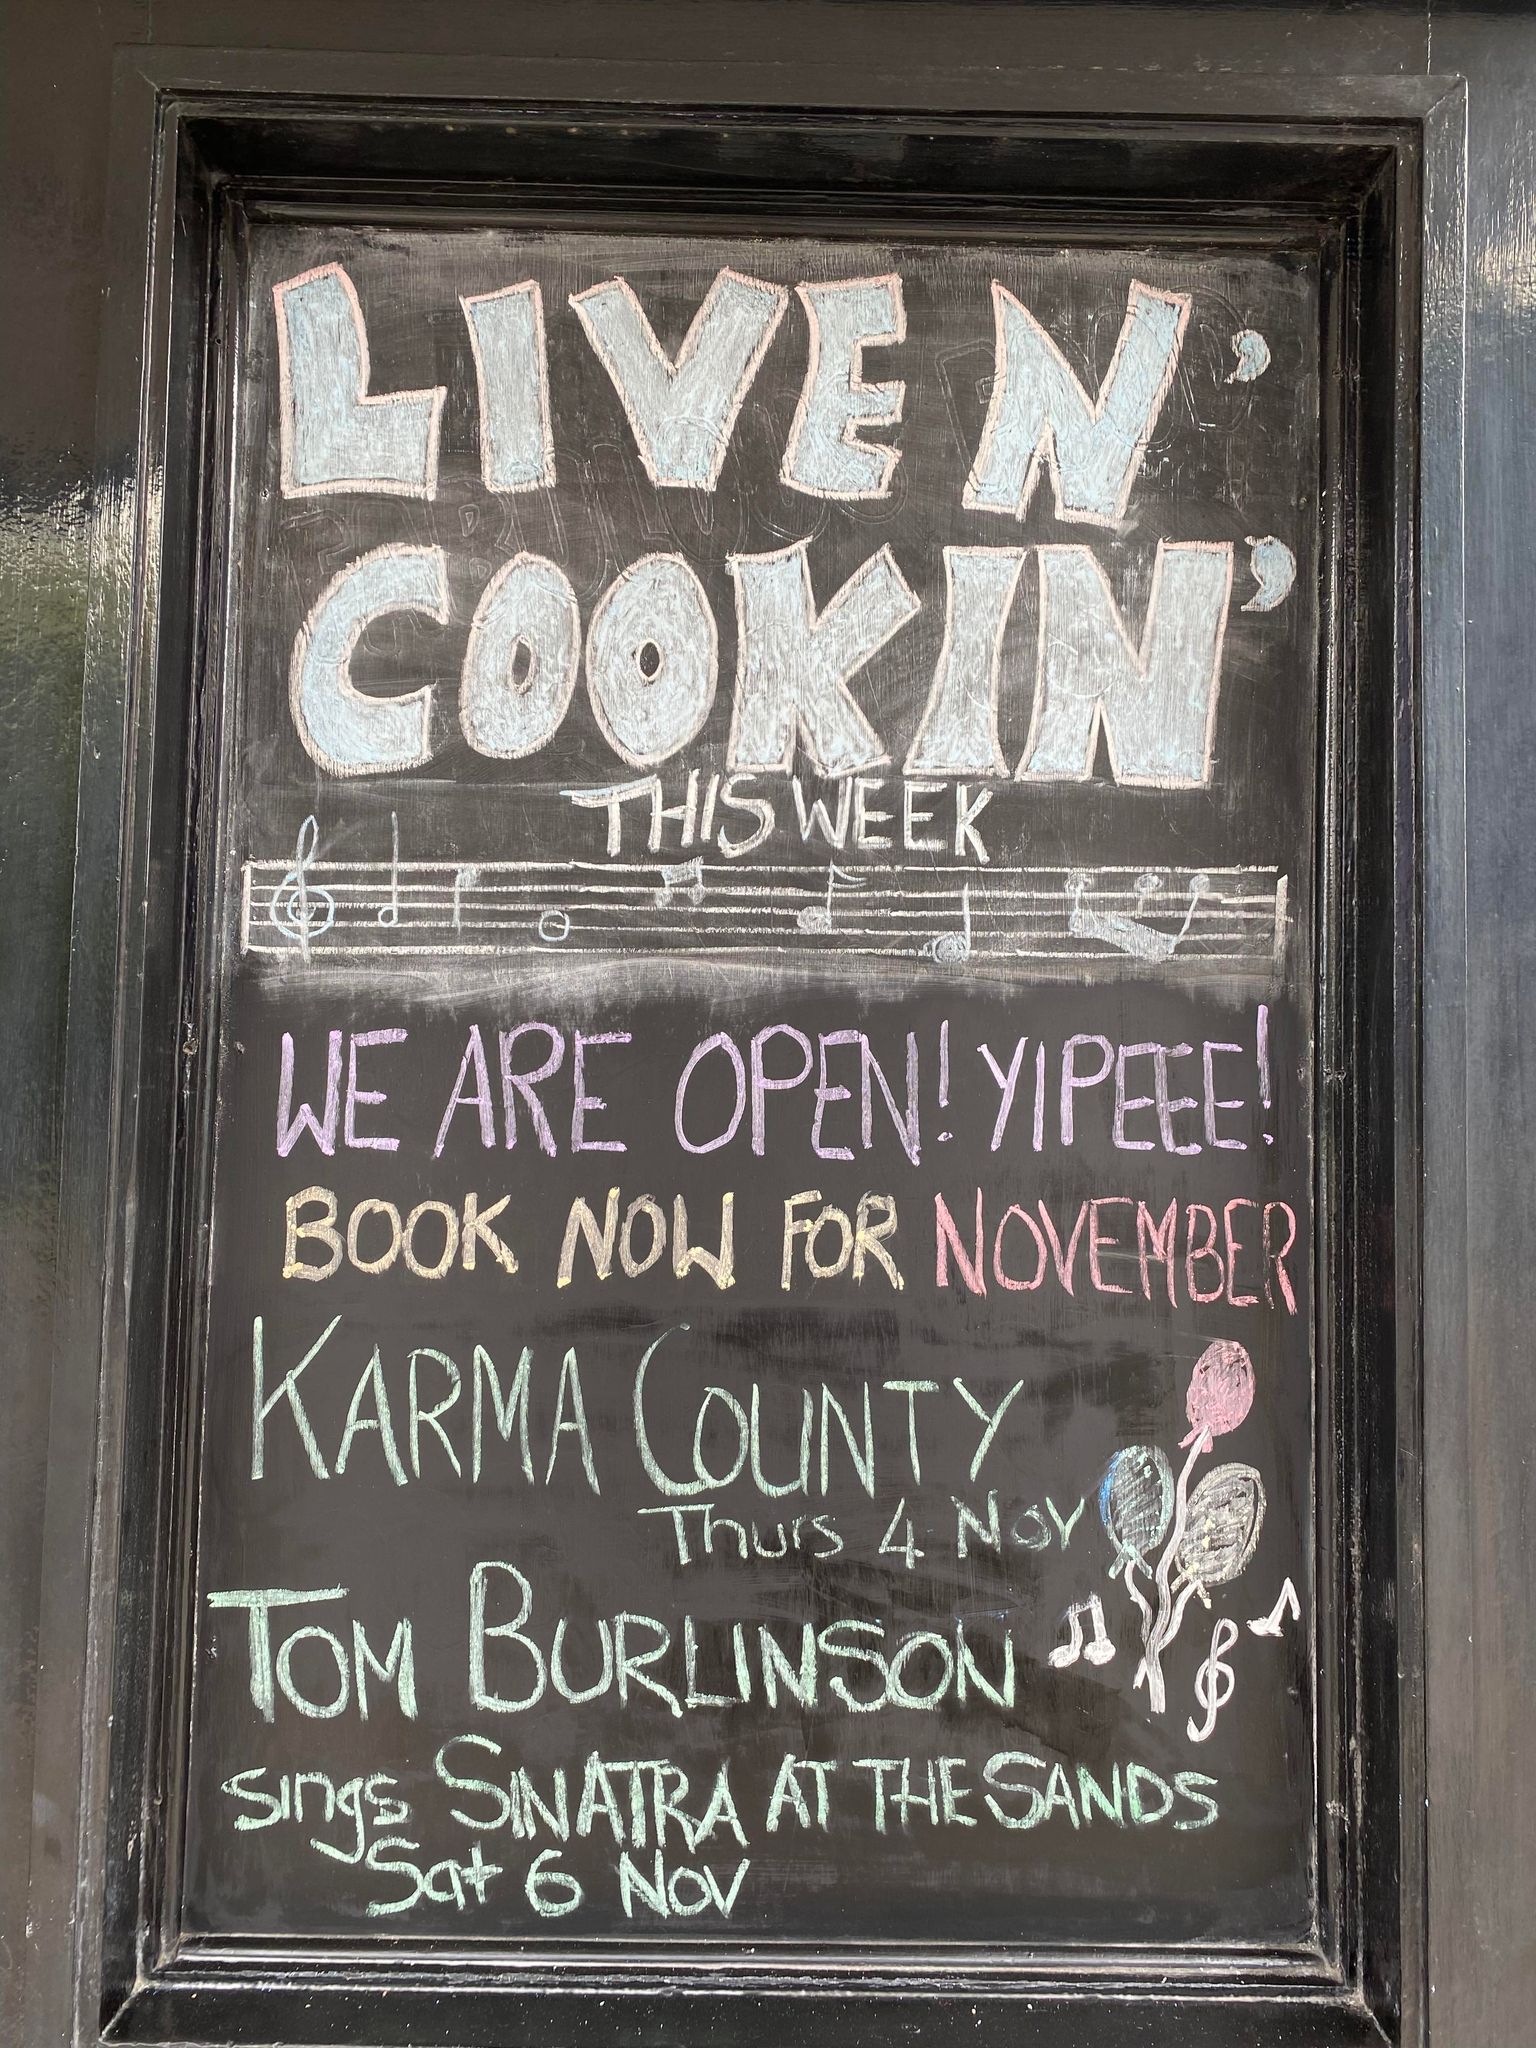 LIVE N'
COOKIN'
THIS WEEK
WE ARE OPEN! YIPEEE!
BOOK NOW FOR NOVEMBER
KARMA COUNTY
Thurs 4 Nov
TOM BURLINSON
sings SINATRA AT THE SANDS
Sat 6 Nov